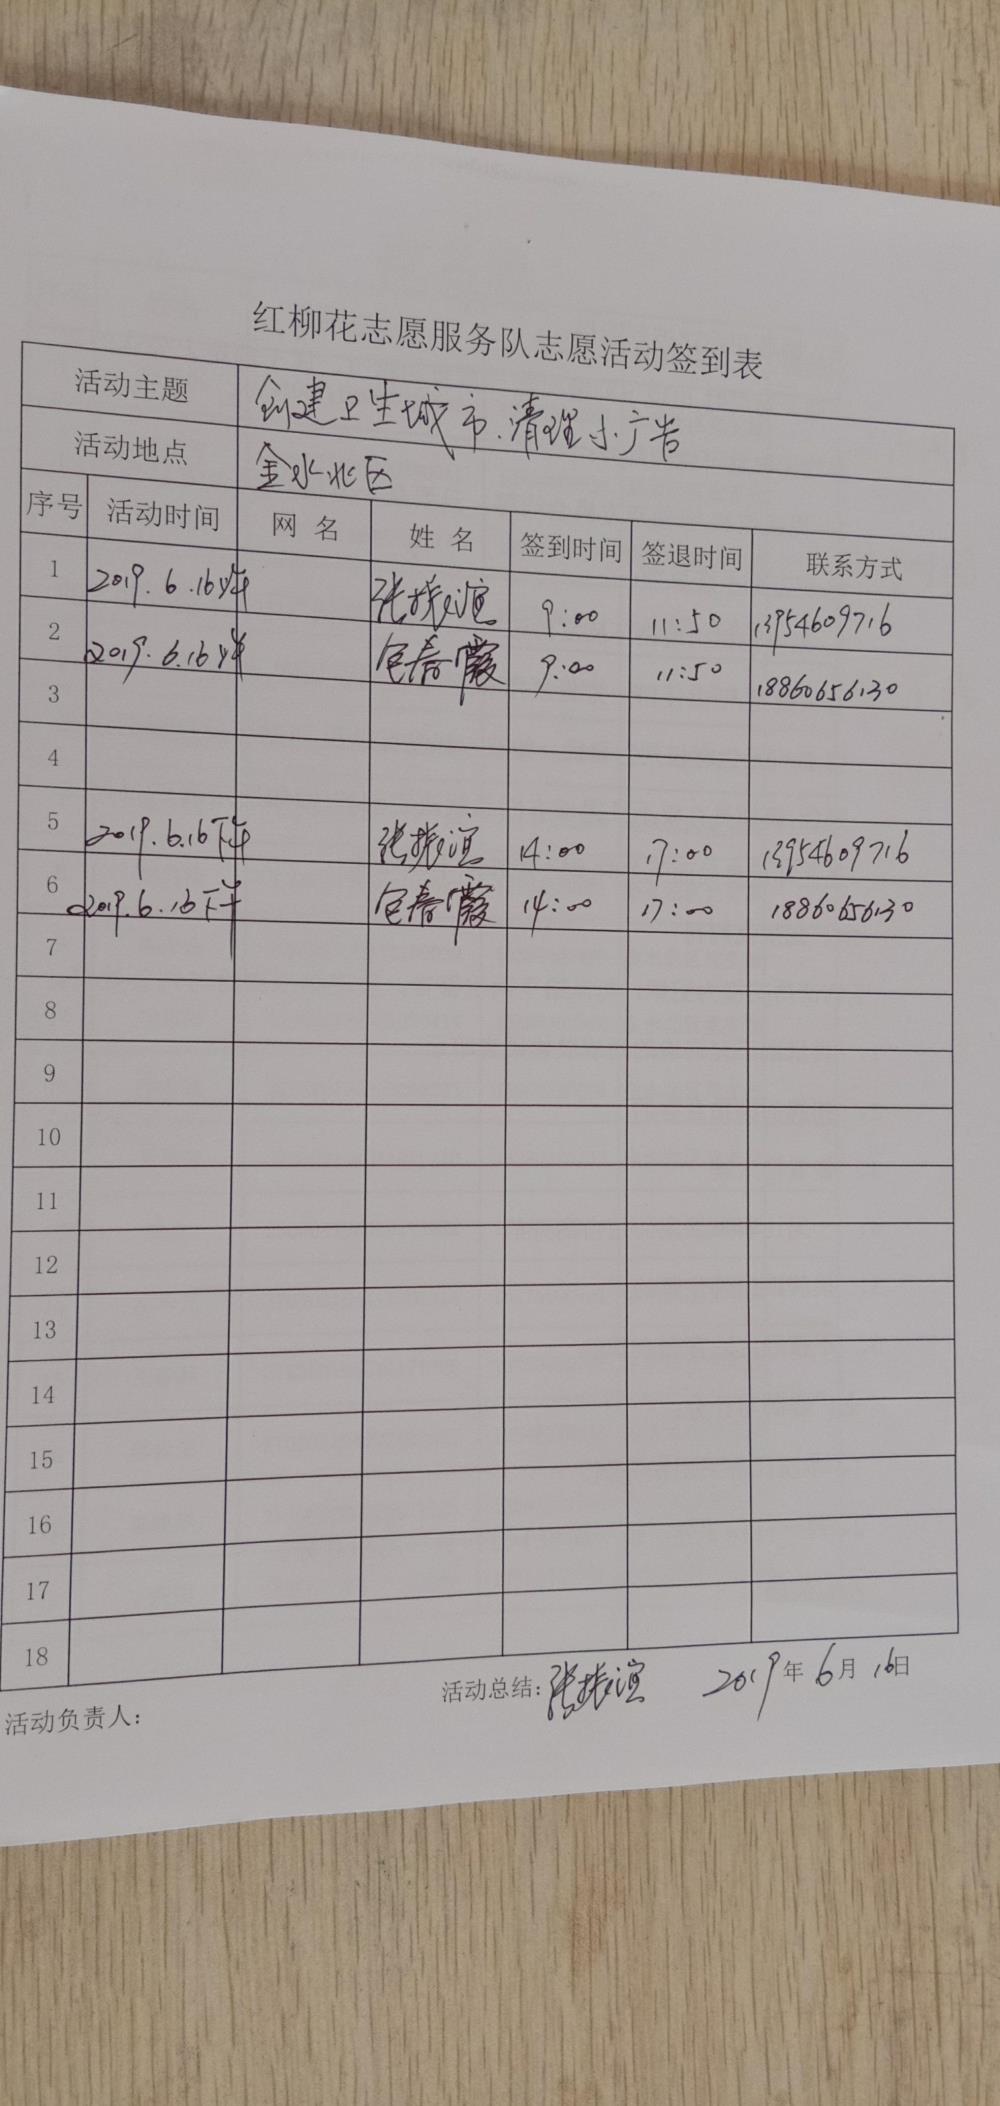 红柳花志愿服务队志愿活动签到表
活动主题 创建卫生城市、清理小广告
活动地点 金水北区
序号 活动时间 网 名 姓 名 签到时间 签退时间 联系方式
1 2019.6.16上午 张振谊 9:00 11:50 13954609716
2 2019.6.16上午 包春霞 9:00 11:50 18860656130
3
4
5 2019.6.16下午 张振谊 14:00 17:00 13954609716
6 2019.6.16下午 包春霞 14:00 17:00 18860656130
7
8
9
10
11
12
13
14
15
16
17
18
活动负责人: 活动总结: 张振谊 2019年6月16日